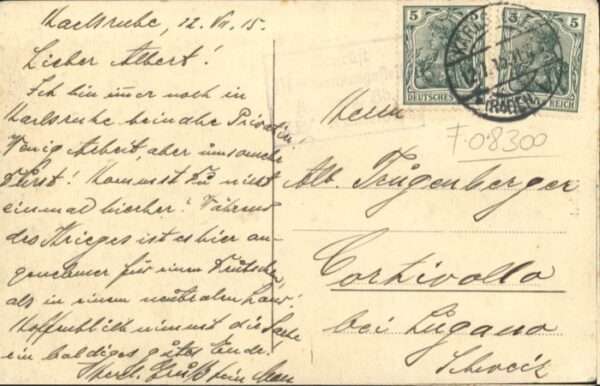 Karlsruhe, 12. VII. 15.
Lieber Albert!
Ich bin immer noch in
Karlsruhe beinahe Privatier.
Wenig Arbeit, aber umsomehr
Durst! Kommst Du nicht
einmal hierher? Während
des Krieges ist es hier an-
genehmer für einen Deutschen,
als in einem neutralen Land!
Hoffentlich nimmt die Sache
ein baldiges gutes Ende.
Herzl. Gruß Dein
5
5
DEUTSCHES
REICH
KARLSRUHE
(BADEN)
Herrn
F08300
Alb. Trügenberger
Cortivallo
bei Lugano
Schweiz